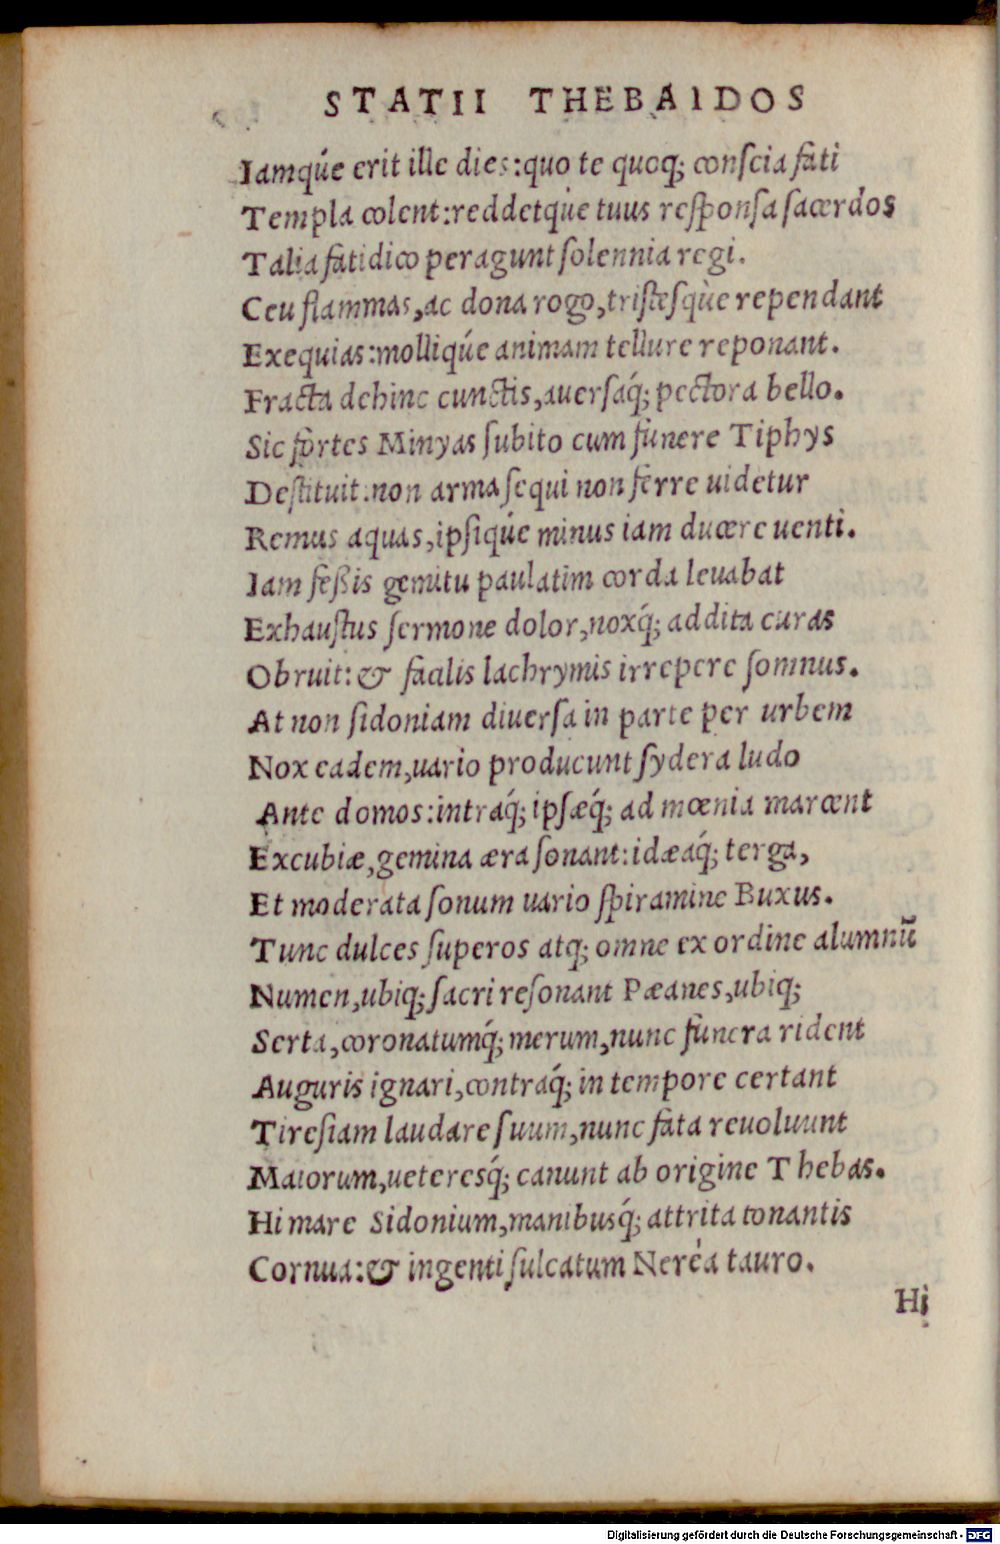 STATII THEBAIDOS
Iamq́ue erit ille dies:quo te quoq; conſcia fati
Templa colent:reddetq́ue tuus reſponſa ſacerdos
Talia fatidico peragunt ſolennia regi.
Ceu flammas,ac dona rogo,triſteſq̀ue rependant
Exequias:molliq́ue animam tellure reponant.
Fracta dehinc cunctis,auerſaq́; pectora bello.
Sic fortes Minyas ſubito cum funere Tiphys
Deſtituit.non arma ſequi non ferre uidetur
Remus aquas,ipſiq́ue minus iam ducere uenti.
Iam feßis gemitu paulatim corda leuabat
Exhauſtus ſermone dolor,noxq́; addita curas
Obruit:& facilis lachrymis irrepere ſomnus.
At non ſidoniam diuerſa in parte per urbem
Nox eadem,uario producunt ſydera ludo
Ante domos:intraq́; ipſæq́; ad mœnia marcent
Excubiæ,gemina æra ſonant:idæaq́; terga,
Et moderata ſonum uario ſpiramine Buxus.
Tunc dulces ſuperos atq; omne ex ordine alumnū
Numen,ubiq; ſacri reſonant Pæanes,ubiq;
Serta,coronatumq́; merum,nunc funera rident
Auguris ignari,contraq́; in tempore certant
Tireſiam laudare ſuum,nunc fata reuoluunt
Maiorum,uetereſq́; canunt ab origine Thebas.
Hi mare Sidonium,manibuſq́; attrita tonantis
Cornua:& ingenti ſulcatum Nereȧ tauro.
Hi
Digitalisierung gefördert durch die Deutsche Forschungsgemeinschaft - DFG